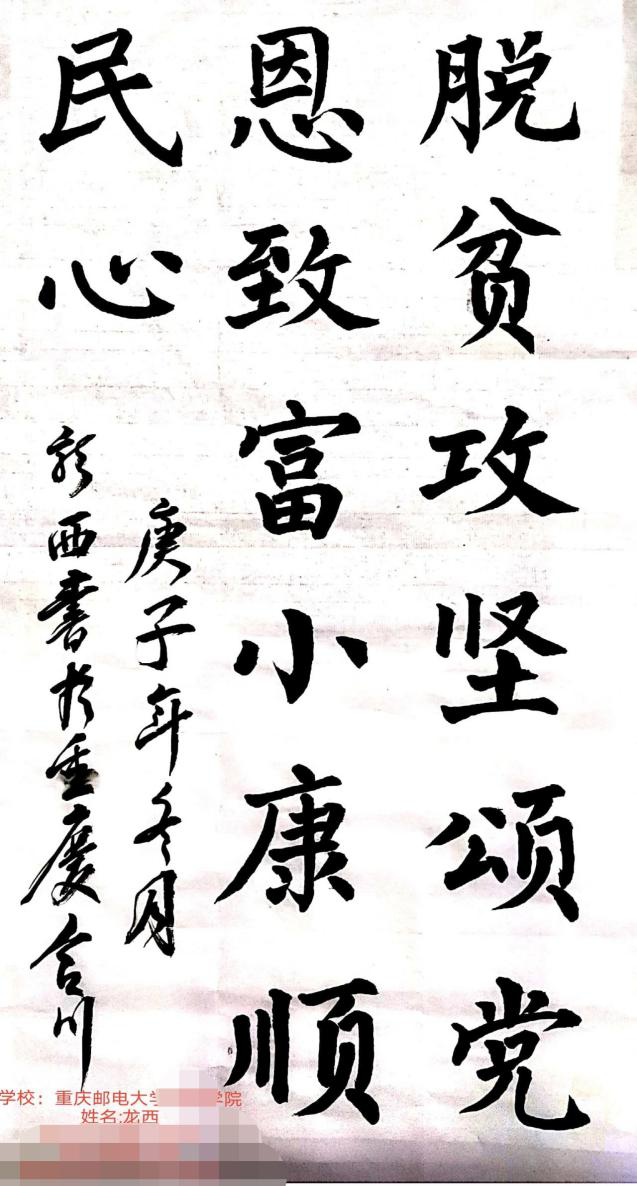 脱贫攻坚颂党
恩致富小康顺
民心
庚子年冬月
龙西书于重庆合川
学校：重庆邮电大学 学院
姓名:龙西